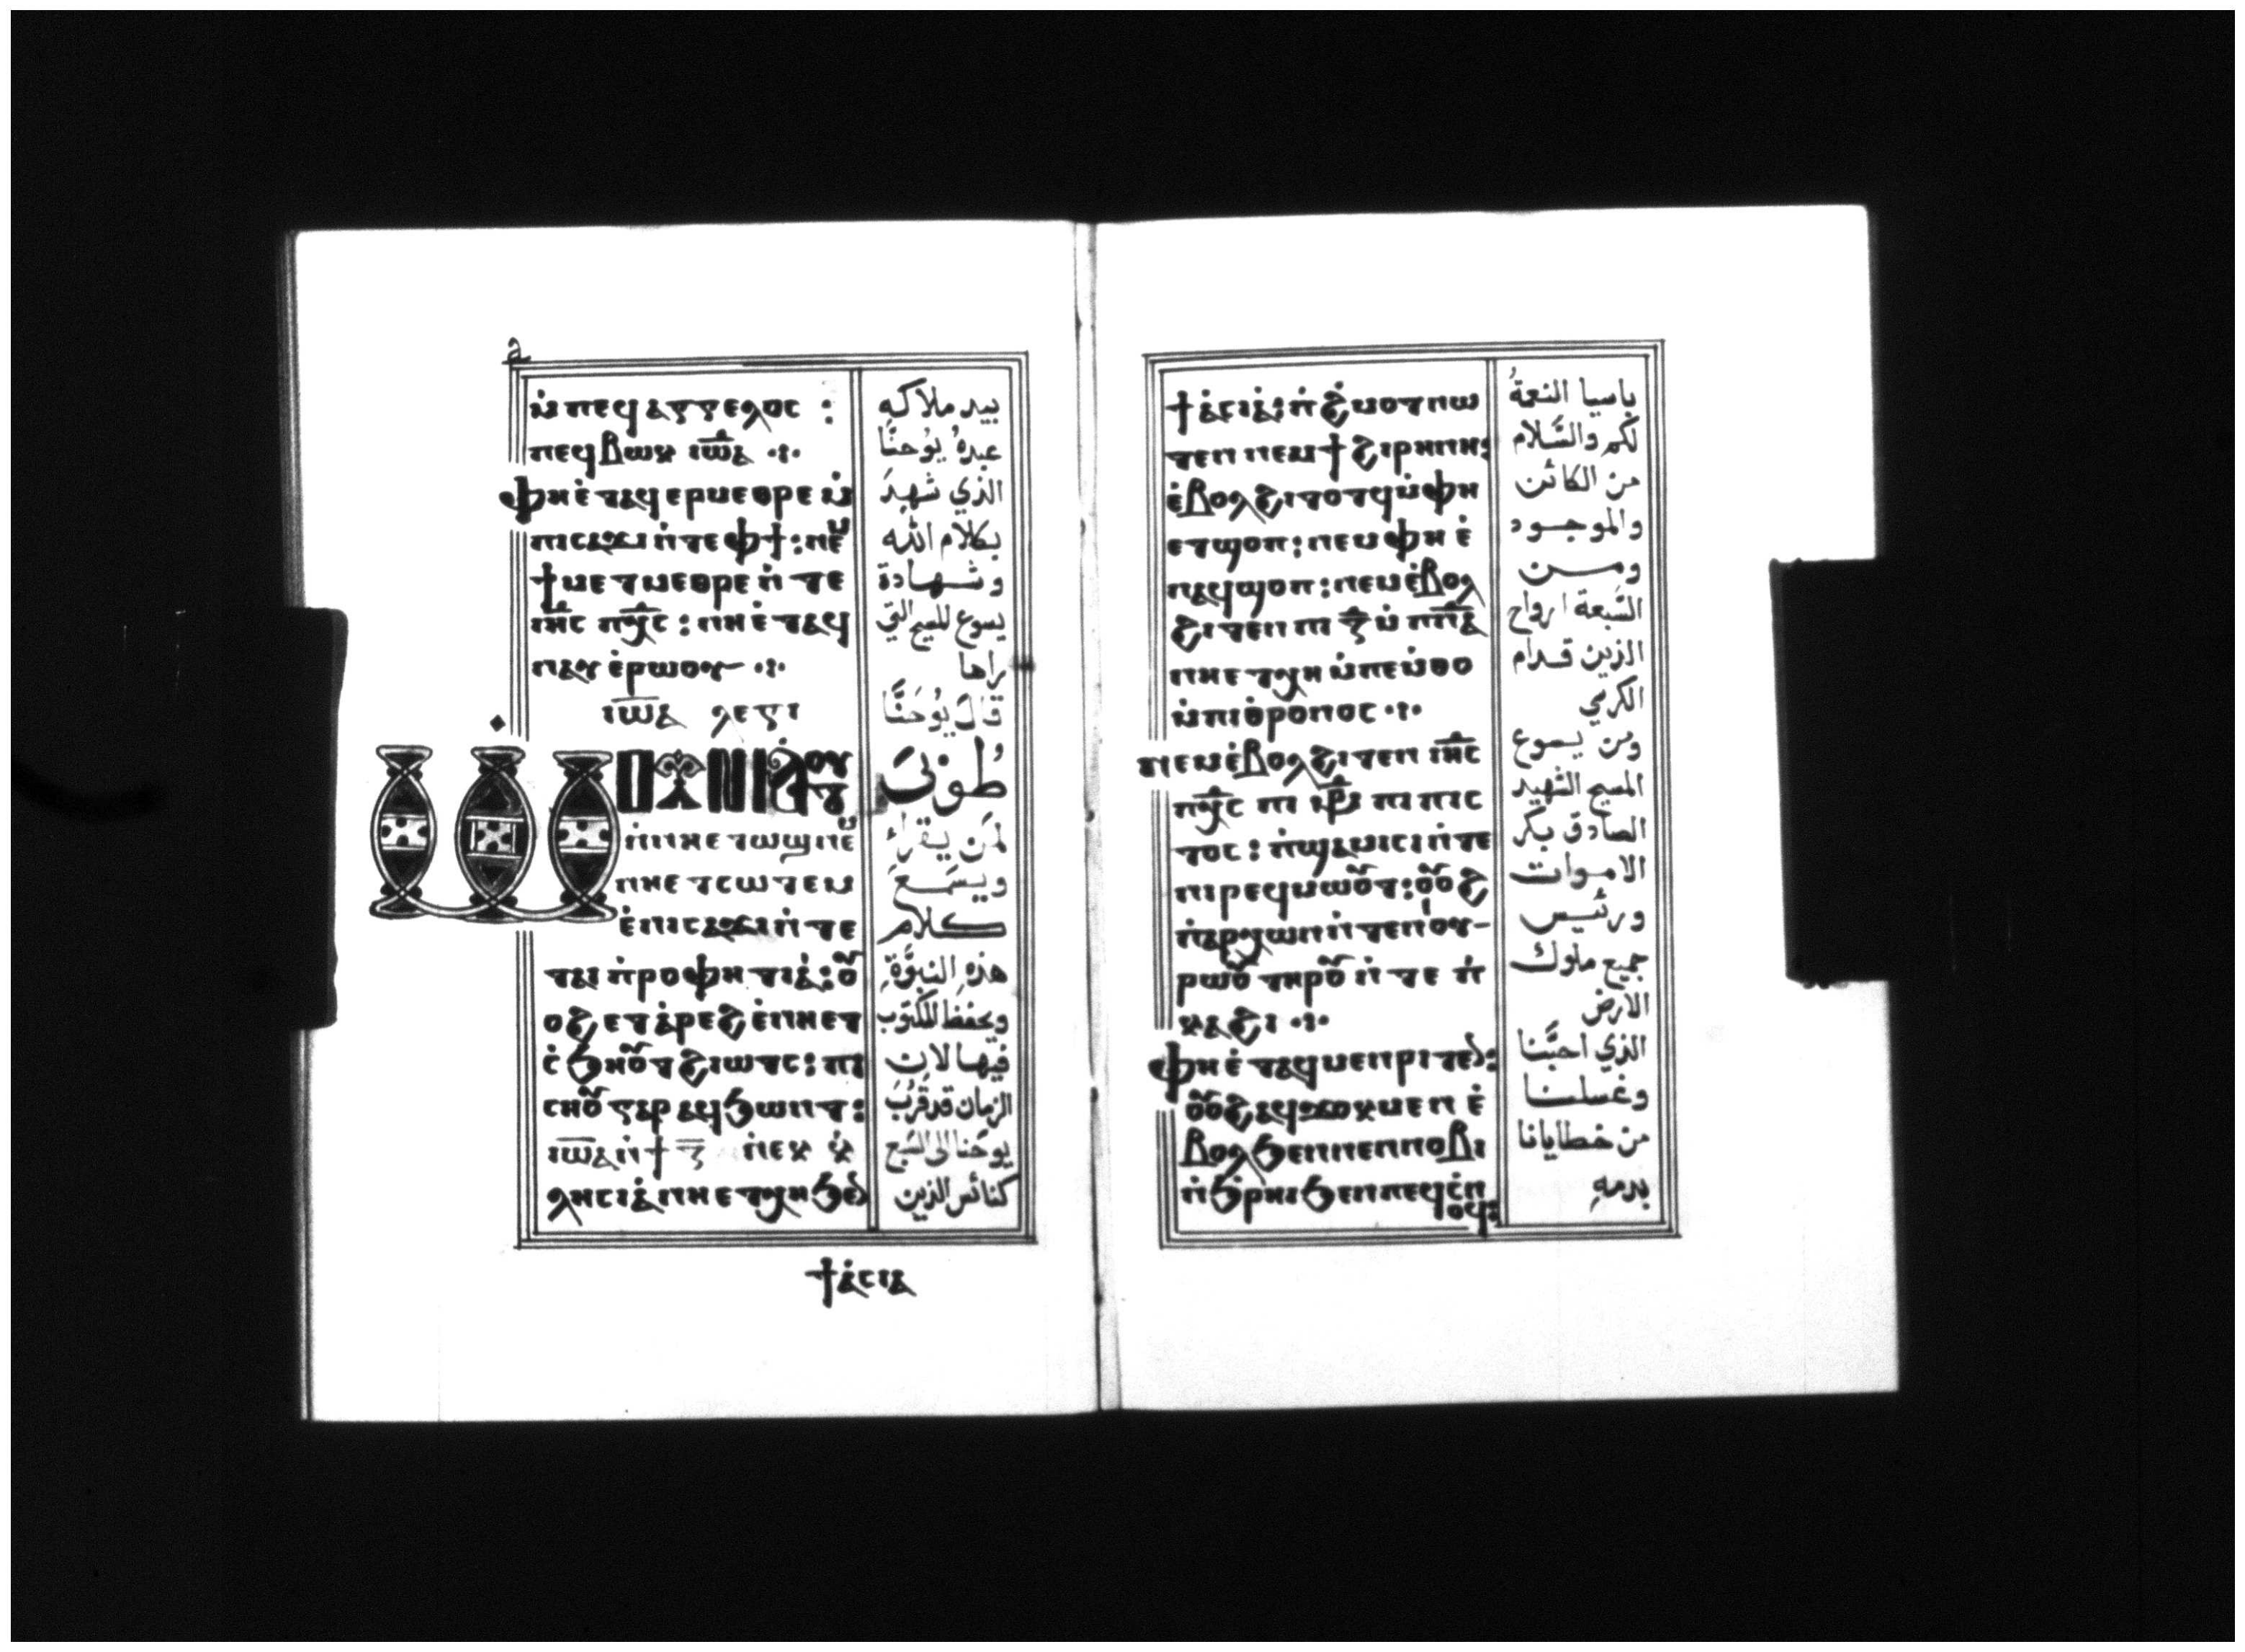 a
ⲙ̇ⲡⲉϥⲁⲅⲅⲉⲗⲟⲥ :
ⲡⲉϥⲃⲱⲕ ⲓⲱ̅ⲁ ·:·
ⲫⲏⲉ̇ⲧⲁϥⲉⲣⲙⲉⲑⲣⲉ ⲙ̇
ⲡⲓⲥⲁϫⲓ ⲛ̇ⲧⲉ ⲫϯ : ⲛⲉⲙ
ϯⲙⲉⲧⲙⲉⲑⲣⲉ ⲛ̇ⲧⲉ
ⲓⲏ̅ⲥ ⲡⲭ̅ⲥ : ⲛⲏⲉ̇ⲧⲁϥ
ⲛⲁⲩ ⲉ̇ⲣⲱⲟⲩ ·:·
ⲓⲱ̅ⲁ ⲗⲉⲅⲓ
ⲱ̇ⲟⲩⲛⲓⲁ̇ⲧⲟⲩ
ⲛ̇ⲛⲏⲉⲧⲱϣ ⲛⲉⲙ
ⲛⲏⲉⲧⲥⲱⲧⲉⲙ
ⲉ̇ⲡⲓⲥⲁϫⲓ ⲛ̇ⲧⲉ
ⲧⲁⲓ ⲡ̇ⲣⲟⲫⲏⲧⲓⲁ̇ : ⲟⲩ
ⲟϩ ⲉⲧⲁ̇ⲣⲉϩ ⲉ̇ⲛⲏⲉⲧ
ⲥ̇ϧⲏⲟⲩⲧ ϩⲓⲱⲧⲥ : ⲡⲓ
ⲥⲏⲟⲩ ⲅⲁⲣ ⲁϥϧⲱⲛⲧ :
ⲓⲱ̅ⲁ ⲛ̇ϯ ⲍ̅ ⲛ̇ⲉⲕⲕ̇
ⲗⲏⲥⲓⲁ̇ ⲛⲏⲉⲧⲭⲏ ϧⲉⲛ
ϯⲁ̇ⲥⲓⲁ
بيد ملاكه
عبدهُ يوُحنَّا
الذي شهدَ
بكلام الله
وشهادة
يسوع المسيح التي
راها
قالَ يُوُحَنَّا
طُوبىَ
لمَن يقراءِ
ويسَمعَ
كلام
هذهِ النبوَّةِ
ويحفظ المكتوب
فيها لان
الزمان قد قَرُبَ
يوحَنا الى السَّبع
كنائس الذين
ϯⲁ̇ⲥⲓⲁ̇ : ⲡ̇ϩⲙⲟⲧ ⲛⲱ
ⲧⲉⲛ ⲛⲉⲙ ϯϩⲓⲣⲏⲛⲏ :
ⲉ̇ⲃⲟⲗϩⲓⲧⲟⲧϥ ⲙ̇ⲫⲏ
ⲉⲧϣⲟⲡ : ⲛⲉⲙ ⲫⲏ ⲉ̇
ⲛⲁϥϣⲟⲡ : ⲛⲉⲙ ⲉ̇ⲃⲟⲗ
ϩⲓⲧⲉⲛ ⲡⲓ ⲍ̅ ⲙ̇ⲡⲛ̅ⲁ
ⲛⲏⲉⲧⲭⲏ ⲙ̇ⲡⲉⲙ̇ⲑⲟ
ⲙ̇ⲡⲓⲑ̇ⲣⲟⲛⲟⲥ ·:·
ⲛⲉⲙ ⲉ̇ⲃⲟⲗϩⲓⲧⲉⲛ ⲓⲏ̅ⲥ
ⲡⲭ̅ⲥ ⲡⲓ ⲙ̅ⲣ̅ ⲡⲓⲡⲓⲥ
ⲧⲟⲥ : ⲡ̇ϣⲁⲙⲓⲥⲓ ⲛ̇ⲧⲉ
ⲛⲓⲣⲉϥⲙⲱⲟⲩⲧ : ⲟⲩⲟϩ
ⲡ̇ⲁⲣⲭⲱⲛ ⲛ̇ⲧⲉ ⲛⲓⲟⲩ-
ⲣⲱⲟⲩ ⲧⲏⲣⲟⲩ ⲛ̇ⲧⲉ ⲡ̇
ⲕⲁϩⲓ ·:·
ⲫⲏⲉ̇ⲧⲁϥⲙⲉⲛⲣⲓⲧⲉⲛ :
ⲟⲩⲟϩ ⲁϥϫⲟⲕⲙⲉⲛ ⲉ̇
ⲃⲟⲗϧⲉⲛ ⲛⲉⲛⲛⲟⲃⲓ
ⲛ̇ϧ̇ⲣⲏⲓ ϧⲉⲛ ⲡⲉϥⲥ̇ⲛ
ⲟϥ :
باسيا النعمةُ
لكم والسَّلام
من الكائن
والموجود
ومن
السَّبعة ارواح
الذين قدام
الكرسي
ومن يسوع
المسيح الشهيد
الصادق بكر
الاموات
ورئيس
جميع ملوك
الارض
الذي احبَّنا
وغسلنا
من خطايانا
بدمهِ